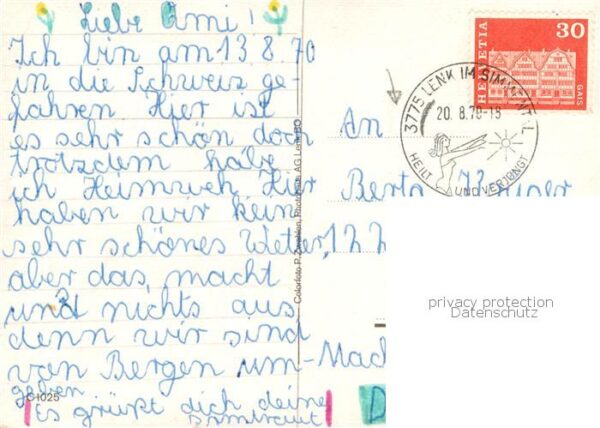 Liebe Omi!
Ich bin am 13.8.70
in die Schweiz ge-
fahren. Hier ist
es sehr schön doch
trotzdem habe
ich Heimweh. Hier
haben wir kein
sehr schönes Wetter,
aber das macht
uns nichts aus
denn wir sind
von Bergen um-
geben
es grüßt dich deine
C 1025
Colorfoto P. Photoplast AG Lenk BO
HELVETIA
30
GAIS
3775 LENK IM SIMMENTAL
20.8.70-18
HEILT UND VERJÜNGT
An
Berta
privacy protection
Datenschutz